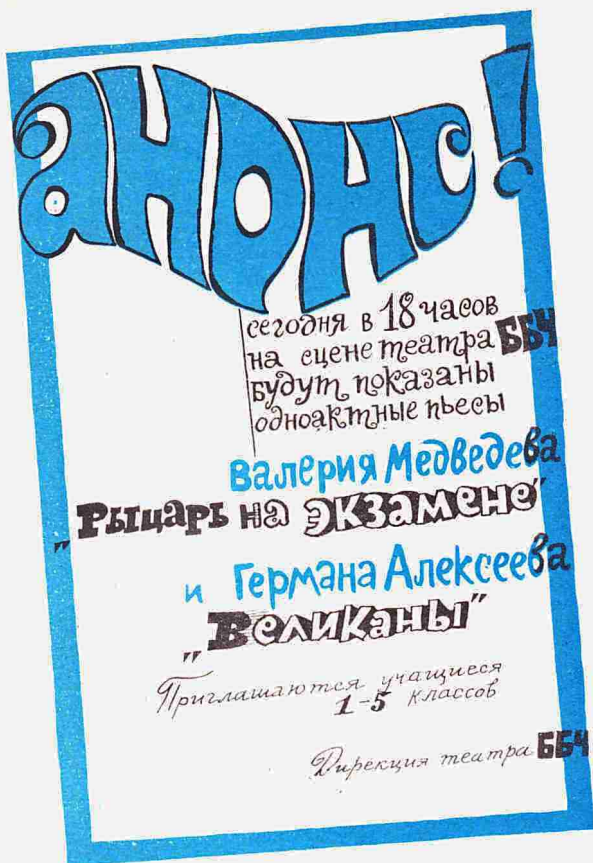 анонс!
сегодня в 18 часов
на сцене театра ББЧ
будут показаны
одноактные пьесы
Валерия Медведева
„Рыцарь на экзамене"
и Германа Алексеева
„Великаны"
Приглашаются учащиеся
1-5 классов
Дирекция театра ББЧ